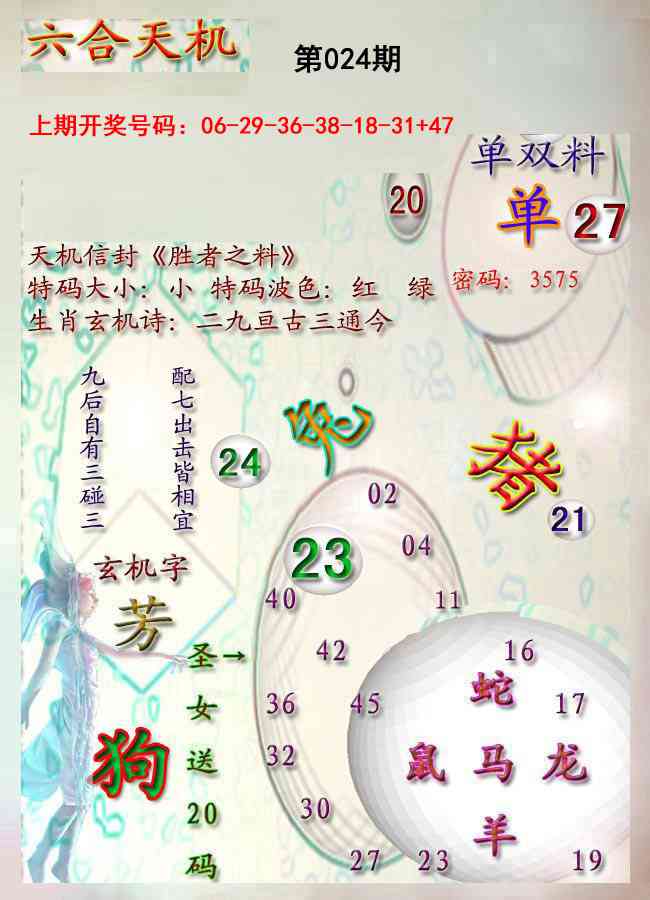 六合天机
第024期
上期开奖号码：06-29-36-38-18-31+47
单双料
20
单
27
天机信封《胜者之料》
特码大小：小 特码波色：红 绿
密码：3575
生肖玄机诗：二九亘古三通今
九后自有三碰三
配七出击皆相宜
24
兔
猪
21
02
23
04
玄机字
芳
40
11
圣→
女
送
20
码
42
16
36
45
蛇
17
狗
32
鼠 马 龙
30
羊
27
23
19